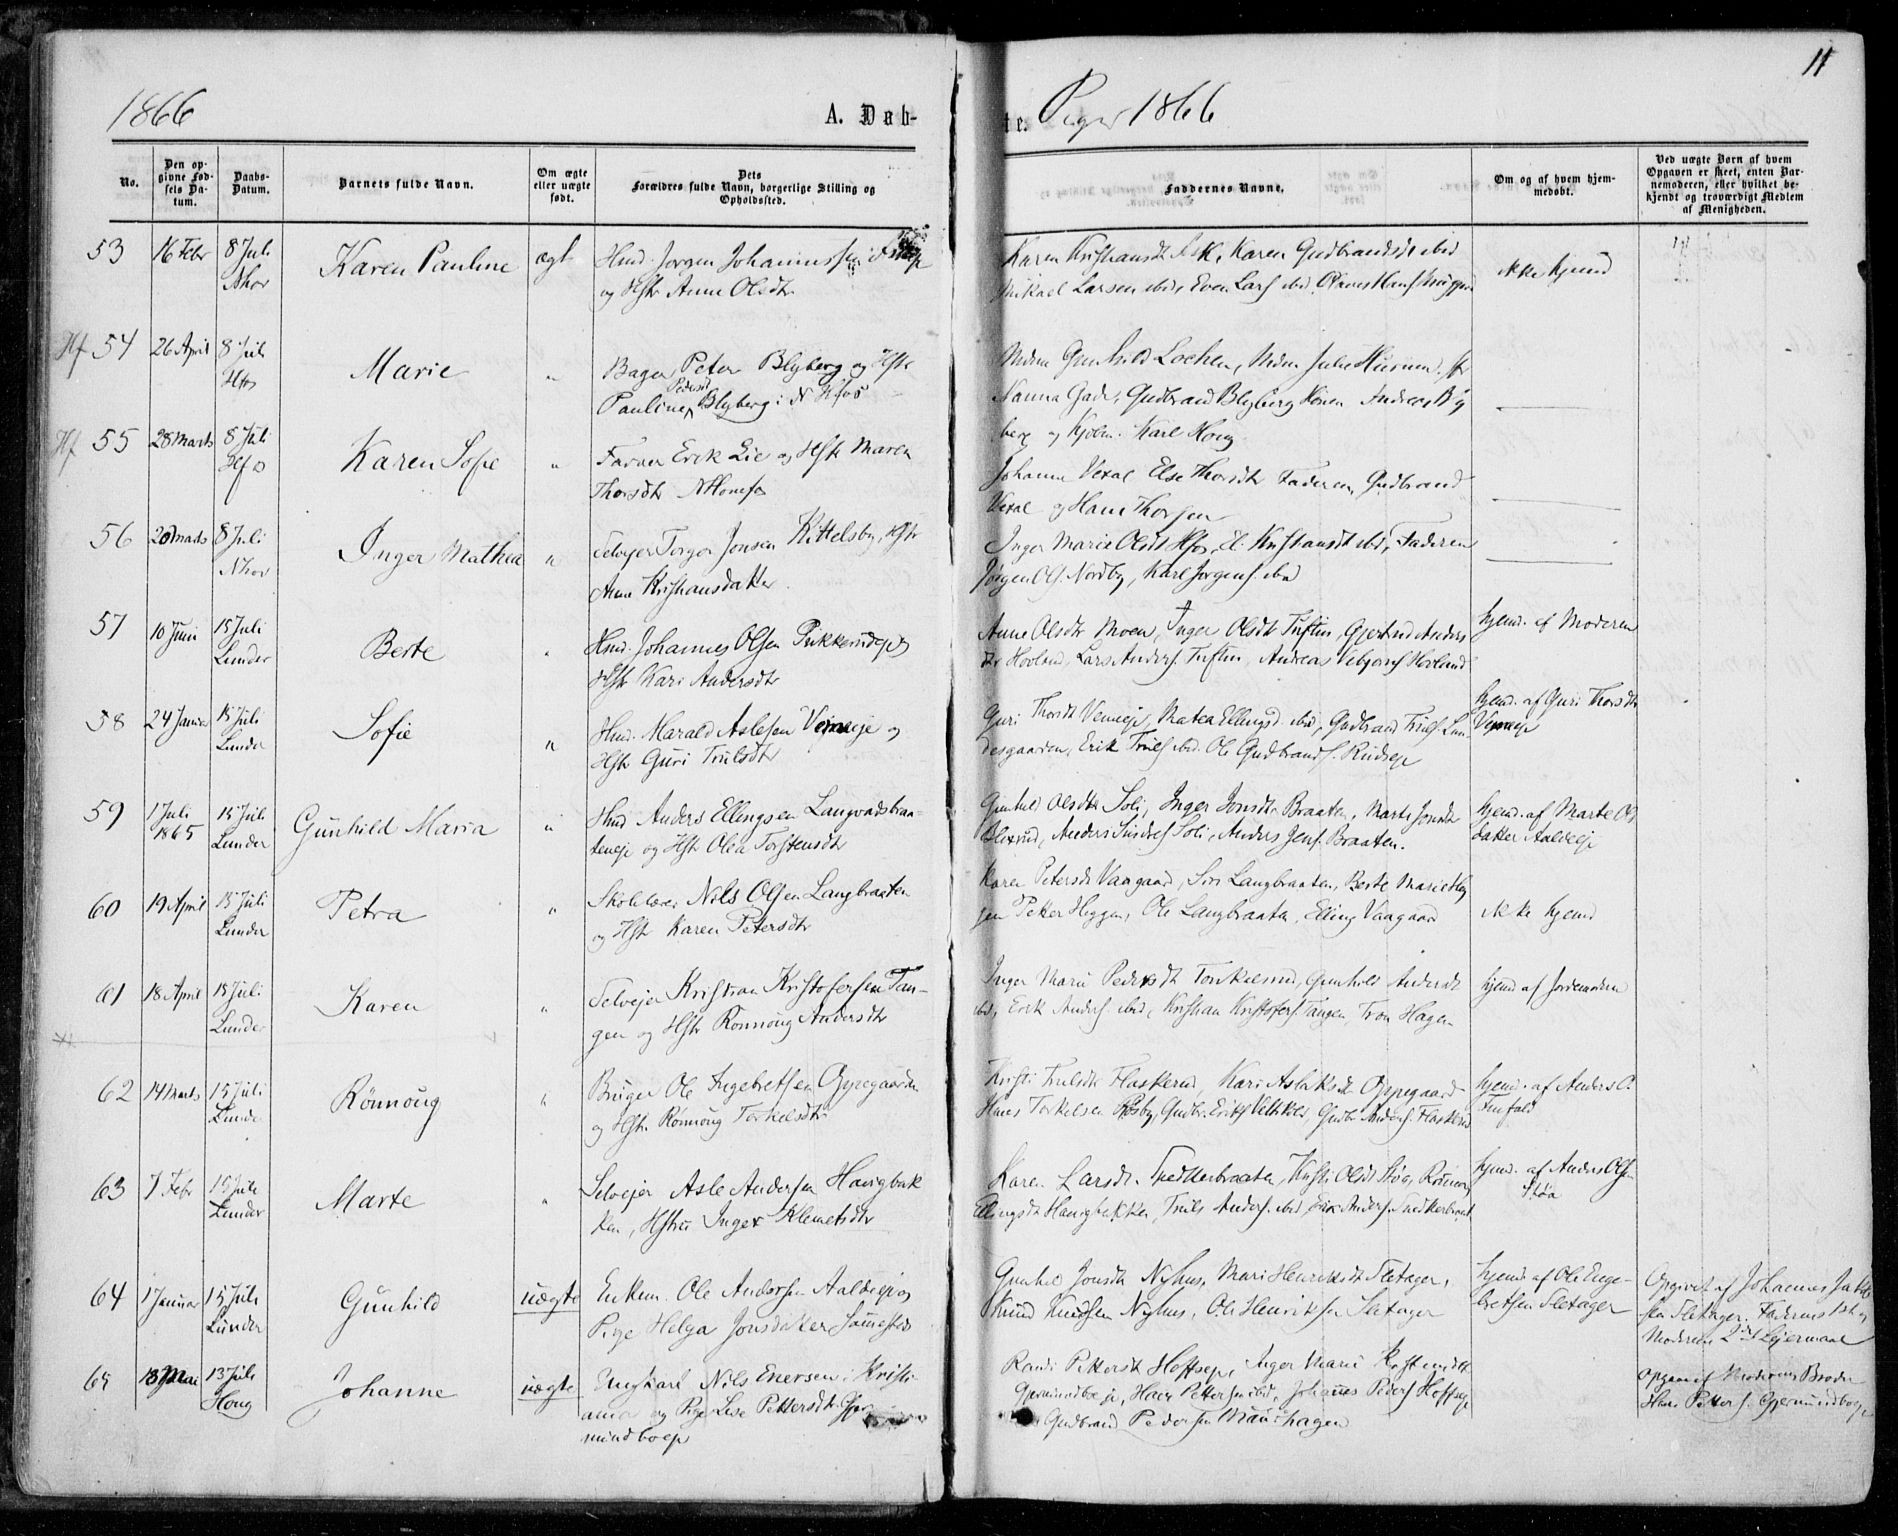 11
1866
A. Døb-
te. Piger 1866
No.
Den op-
givne Fød-
sels Da-
tum.
Daabs-
Datum.
Barnets fulde Navn.
Om ægte
eller uægte
født.
Dets
Forældres fulde Navn, borgerlige Stilling og
Opholdssted.
Faddernes Navne.
Om og af hvem hjem-
medøbt.
Ved uægte Børn af hvem
Opgaven er skeet, enten Bar-
nemoderen, eller hvilket be-
kjendt og troværdigt Medlem
af Menigheden.
53 16 Febr 8 Juli Karen Pauline ægt Hmd. Jørgen Johannessen
Nhov og Hstr Anne Olsdtr
Karen Kristiansdt Ask, Karen Gudbrandsdt ibid
Mikael Larsen ibid, Even Lars ibid, Olaves Hans
ikke hjemd
Hf 54 26 April 8 Juli Marie " Bager Peter Blyberg og Hstr
Hfos Pauline Pedersd Blyberg i N Hfos
Mdm Gunhild Lochen, Mdm Julie Husum, fr
Nanna Gade, Gudbrand Blyberg Andreas Bly
berg og Kjøbm. Karl Hong
Hf 55 28 Marts 8 Juli Karen Sofie " Farver Erik Lie og Hstr Maren
Hfos Thorsdtr NHonefos
Johanne Vexal Else Thorsdtr Faderen, Gudbrand
Vexal og Hans Thorsen
56 20 Marts 8 Juli Inger Mathea " Selvejer Torger Jonsen Kittelsby, Hstr
Nhov Anne Kristiansdatter
Inger Marie Olsdt Hfos, El. Kristiansdt ibid, Faderen
Jørgen Ols. Nordby, Karl Jørgens. ibid
57 10 Juni 15 Juli Berte " Hmd. Johannes Olsen Pukkerudejet
Lunder Hstr Kari Andersdtr
Anne Olsdtr Moen, Inger Olsdt Tuftin, Gjertrud Anders
dtr Hovland, Lars Anders. Tuftin, Andreas Hovland
hjemd. af Moderen
58 24 Januar 15 Juli Sofie " Hmd. Harald Aslesen Vemeje og
Lunder Hstr Guri Trulsdtr
Guri Thorsdt Vemeje, Matea Ellingsd. ibid, Gudbrand Truls. Lun
desgaarden, Erik Truls ibid. Ole Gudbrands. Rudseje
hjemd. af Guri Thorsdt
Vemeje
59 1 Juli 15 Juli Gunhild Maria " Hmd Anders Ellingsen Langvadsbraa-
1865 Lunder teneje og Hstr Olea Torstensdtr
Gunhil Olsdtr Soli, Inger Jonsdtr Braaten, Marte Jonsdtr
Anders Soli, Anders Jens. Braaten.
hjemd. af Marte Ols
datter Aaldeeje
60 19 April 15 Juli Petra " Skolelærer Nils Olsen Langbraaten
Lunder og Hstr Karen Petersdtr
Karen Petersdt Vaagaard, Siri Langbraaten, Berte Marie Hig
gen Petter Heggen, Ole Langbraaten, Elling Vaagaard
ikke hjemd
61 18 April 15 Juli Karen " Selvejer Kristian Kristofersen Tan-
Lunder gen og Hstr Rønnoug Andersdtr
Inger Marie Pedersdt Torkelsrud, Gunhild Andersdt
ibid, Erik Anders. ibid, Kristian Kristofers. Tangen, Tron Hagen
hjemd af Jordemoderen
62 14 Marts 15 Juli Rønnoug " Bruger Ole Ingebretsen Oppegaarden
Lunder og Hstr. Rønnoug Torkelsdtr
Kristi Trulsdt Flaskerud, Kari Aslaksdt Oppegaard
Hans Torkelsen Rosby, Gudbr. Eriks Veltkols, Gudbr Anders. Flaskerud
hjemd. af Anders O.
63 7 Febr 15 Juli Marte " Selvejer Asle Andersen Haugbak
Lunder ken, Hstru Inger Klemetsdtr
Karen Larsdt. Snedkerbraaten, Kristi Olsdt Støa, Rønnoug
Ellingsdt Haugbakken, Truls Anders. ibid, Erik Anders. Snedkerbraat
hjemd. af Anders Olsen
Støa
64 1 Januar 15 Juli Gunhild uægte Enkem. Ole Andersen Aaldeeje og
Lunder Pige Helga Jonsdatter Sammesteds
Gunhil Jonsdt Nyhus, Mari Henriksdt Sletager,
Knud Knudsen Nyhus, Ole Henriksen Sletager
hjemd. af Ole Enge-
bretsen Sletager
Opgivet af Johannes Jakob
sen Sletager. Faderens 1ste og
Moderens 2det Lejermaal
65 18 Mai 13 Juli Johanne uægte Ungkarl Nils Enersen i Kristi-
Houg ania og Pige Lise Pettersdt Gjer
mundboeje
Randi Pettersdt Hoffseje, Inger Marie
Gjermundboeje, Hans Pettersen ibid, Johannes Peders Hoffseje
Gudbrand Pedersen
Opgivet af Moderens Broder
Hans Petters. Gjermundboeje